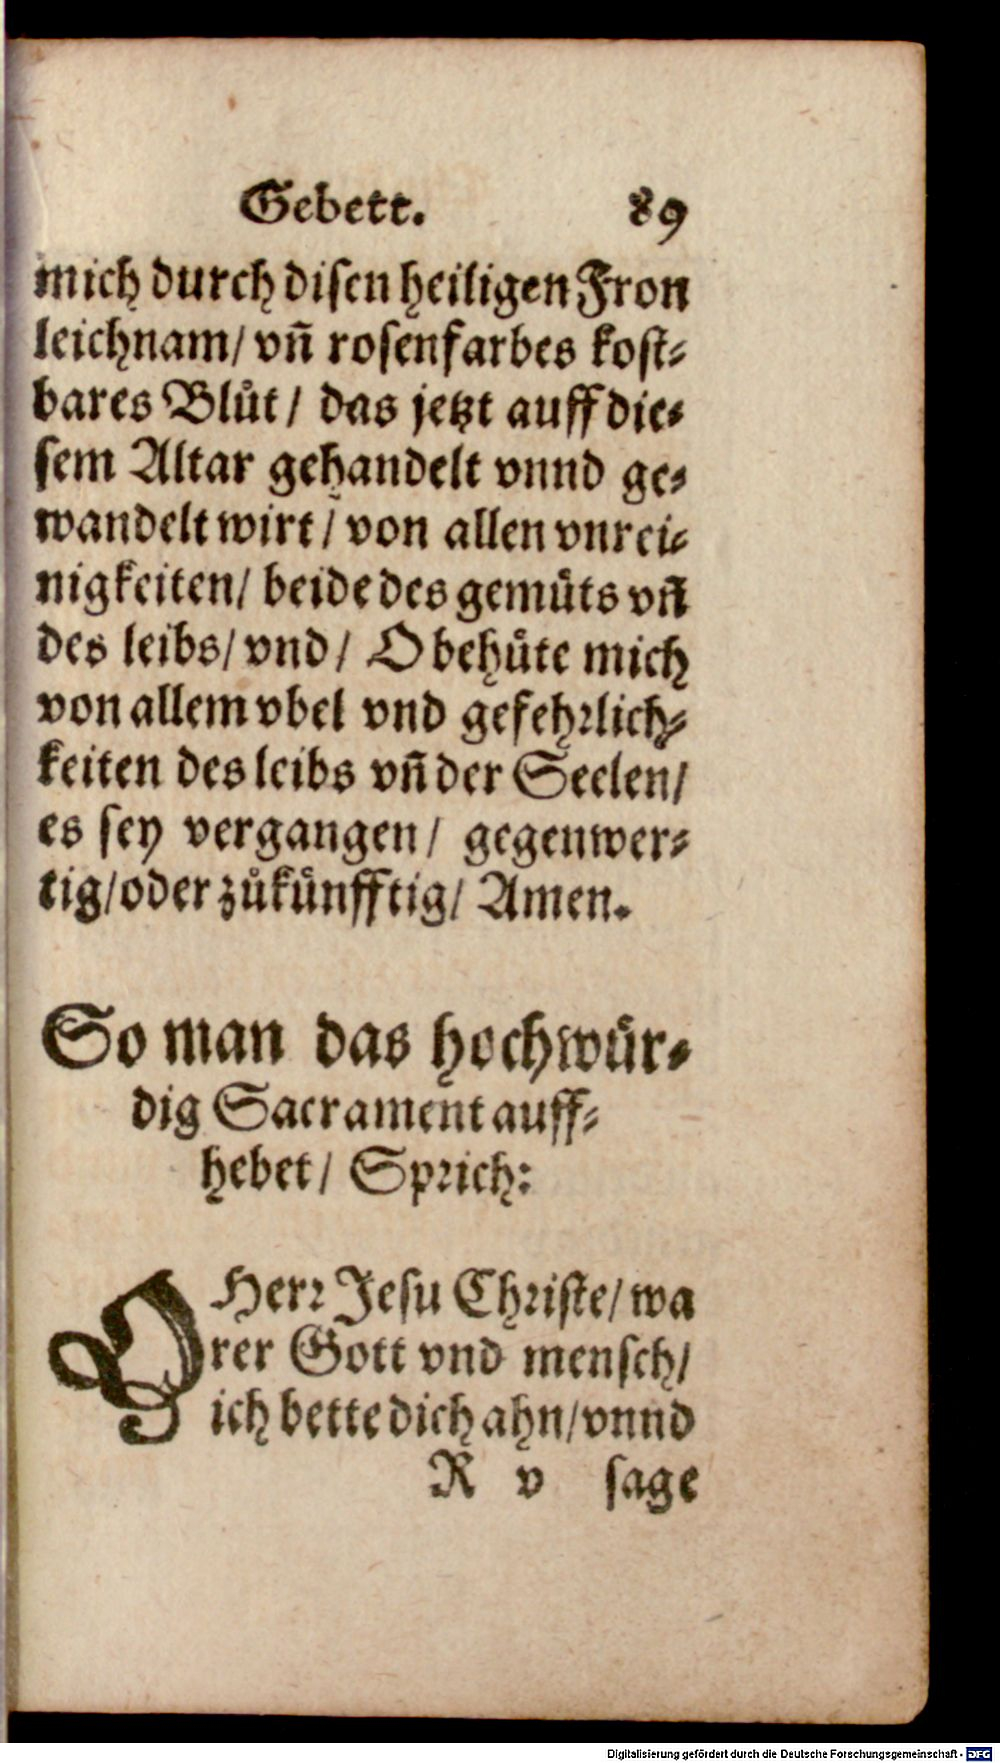 Gebett. 89
mich durch disen heiligen Fron
leichnam/ vñ rosenfarbes kost-
bares Blůt/ das jetzt auff die-
sem Altar gehandelt vnnd ge-
wandelt wirt/ von allen vnrei-
nigkeiten/ beide des gemüts vñ
des leibs/ vnd/ O behüte mich
von allem vbel vnd gefehrlich-
keiten des leibs vñ der Seelen/
es sey vergangen/ gegenwer-
tig/ oder zůkünfftig/ Amen.
So man das hochwür-
dig Sacrament auff-
hebet/ Sprich:
O Herr Jesu Christe/ wa
rer Gott vnd mensch/
ich bette dich ahn/ vnnd
R v sage
Digitalisierung gefördert durch die Deutsche Forschungsgemeinschaft - DFG